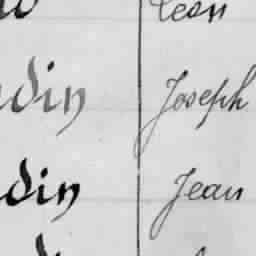 Léon
din Joseph
din Jean